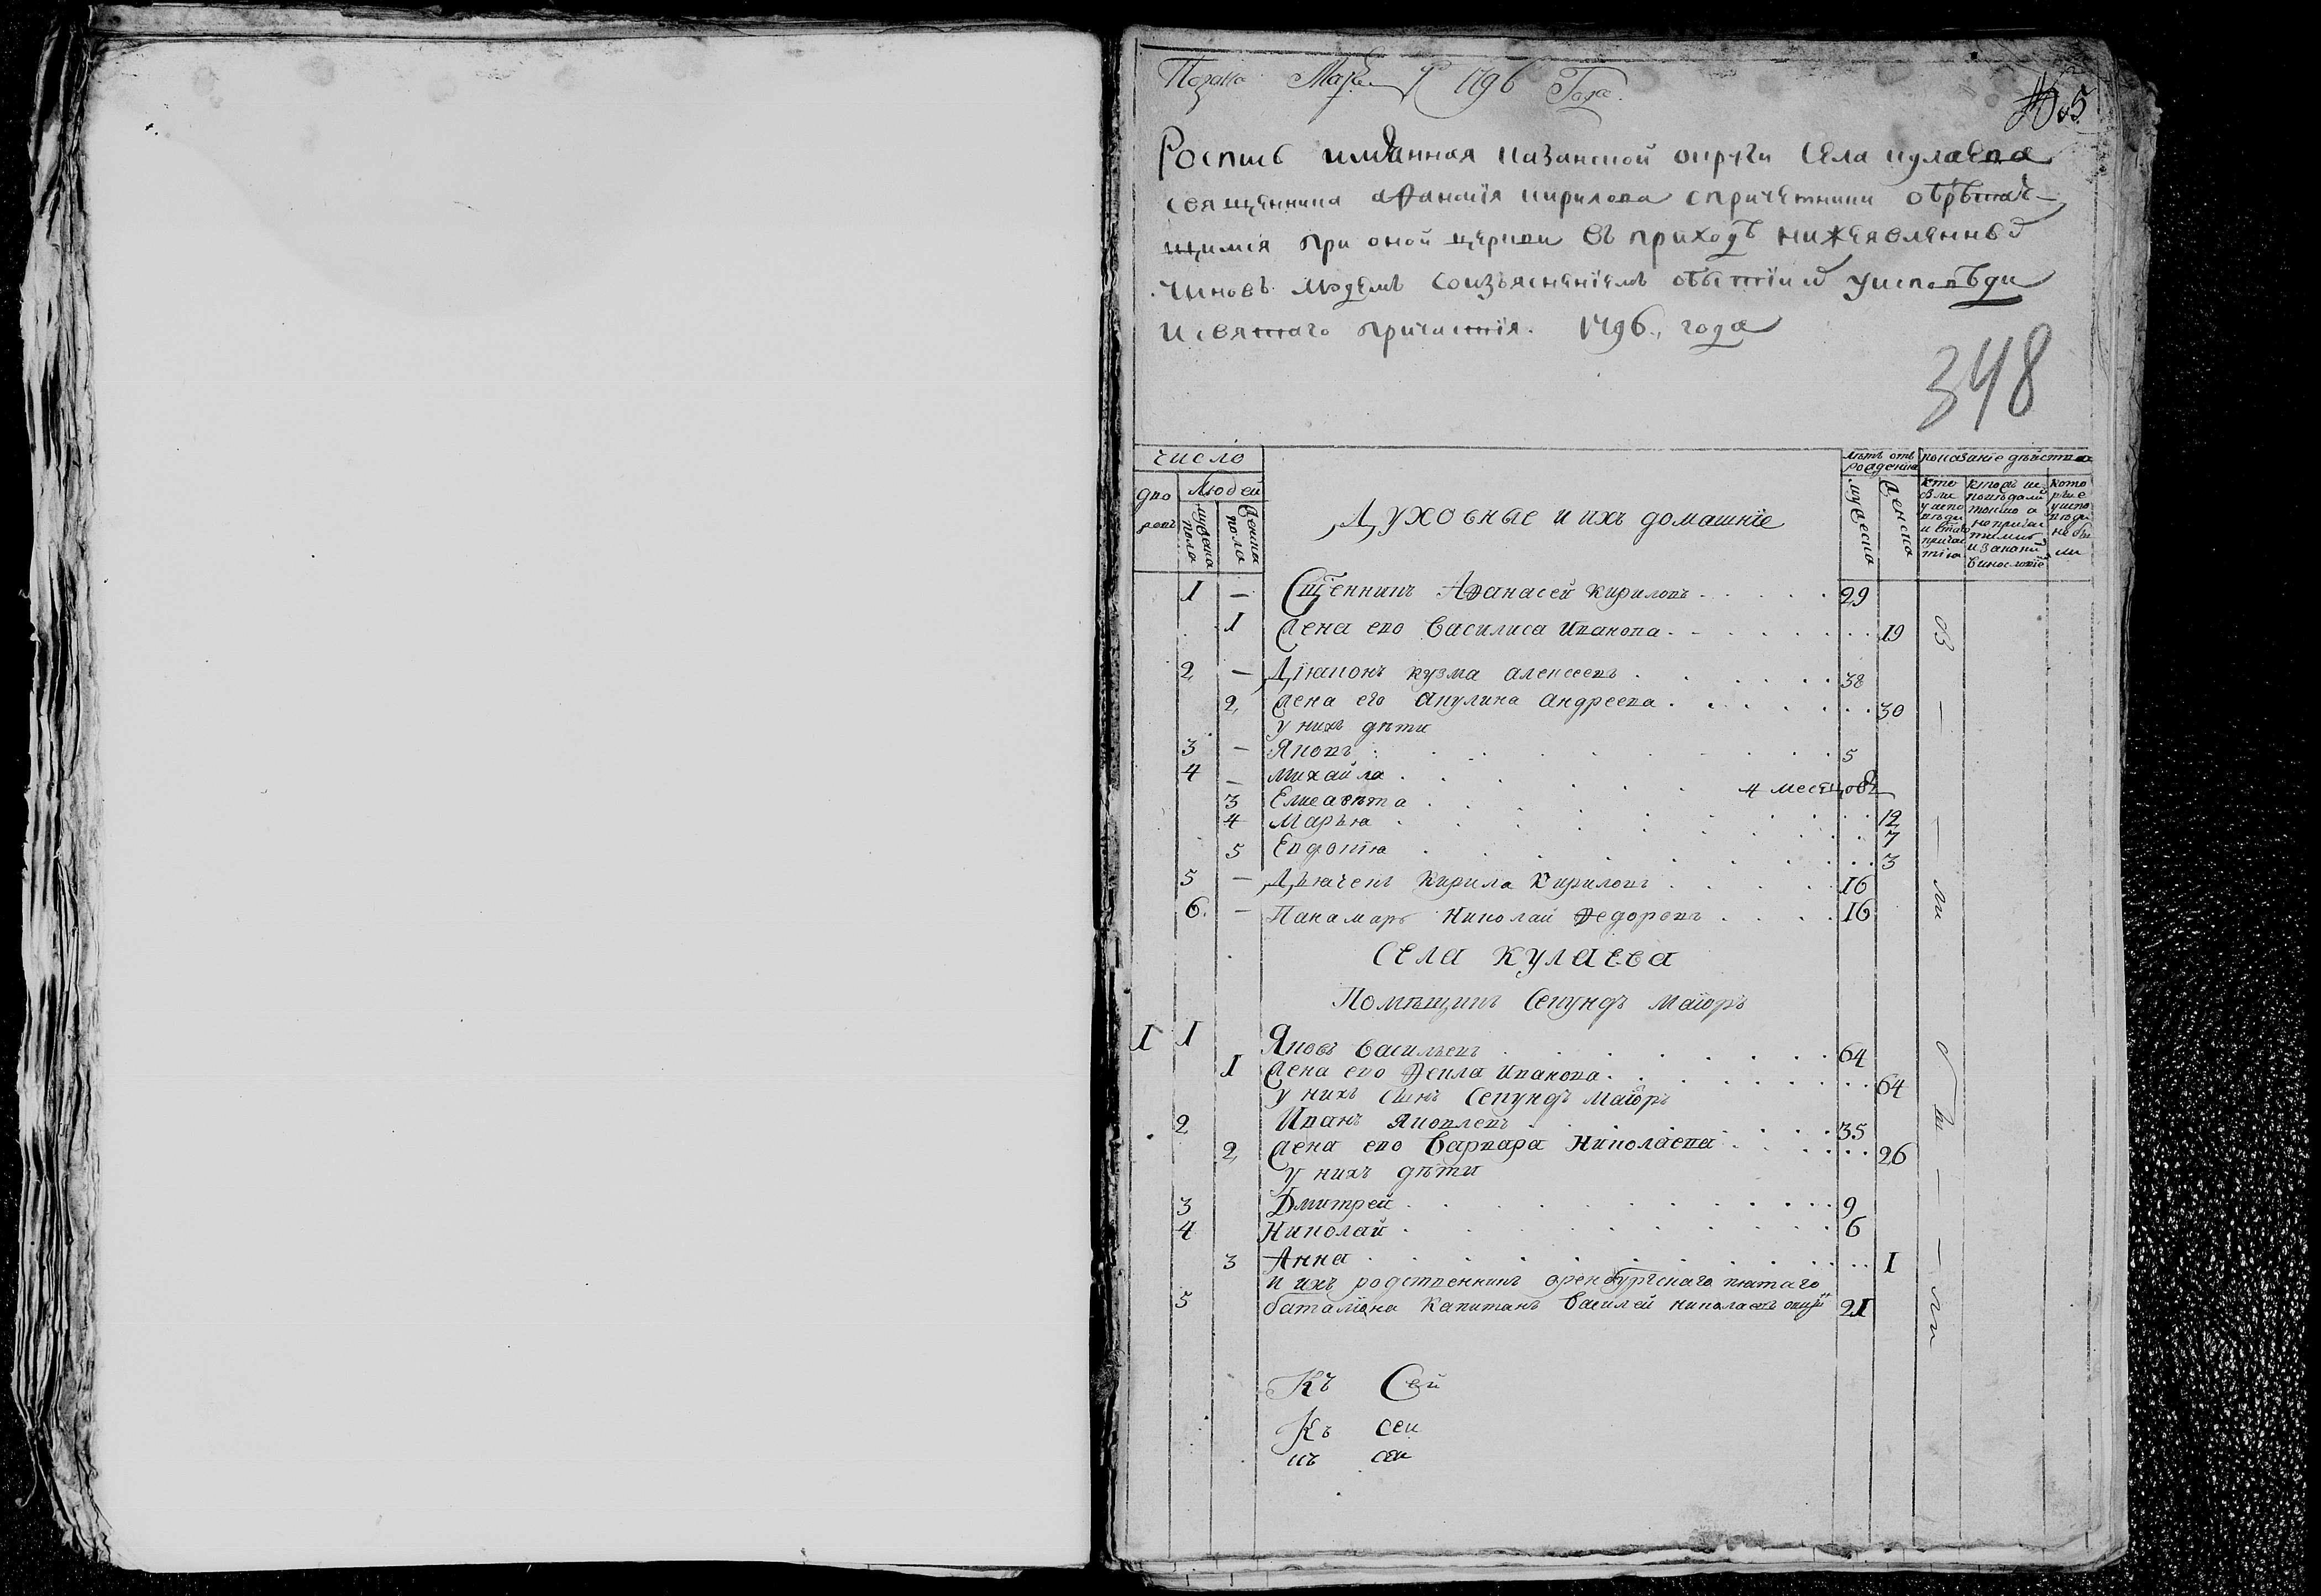 Подана Марта 1796 Года.
№ 5
Роспись имянная казанской округи села кулаева
священника афанасїя кирилова спричетники обрѣтаю-
щимся при оной церкви въ приходѣ нижеявленныхъ
чиновъ людемъ соизъясненїемъ обытїи ихъ уисповѣди
и святаго причастїя. 1796, года
348
число
лѣтъ отъ рождения
показанїе дѣйства
дво ровъ
людей
мужеска пола
женска пола
Духовные и ихъ домашнїе
мужеска
женска
кто были у испо вѣди и свтаго причас тїя
кои испо вѣдали токмо а не причас тились
кото рые уиспо вѣди не бы ли
1 — Сщенникъ Афанасей Кириловъ 29
1 Жена ево Василиса Иванова 19
2 — Дїаконъ кузма алексеевъ 38
2 Жена его Акулина Андреева 30
у нихъ дѣти
3 — Яковъ 5
4 — михайла 4 месяцовъ
3 Елисавѣта 12
4 Марья 7
5 Евдокїя 3
5 — Дьячекъ Кирила Кириловъ 16
6. — Панамарь Николай Федоровъ 16
бы — — ли
села кулаева
Помѣщикъ Секундъ маїоръ
1 1 Яковъ Васильевъ 64
1 Жена ево Фекла Иванова 64
у нихъ сынъ Секундъ маїоръ
2 Иванъ Яковлевъ 35
2 Жена ево Варвара Николаева 26
у нихъ дѣти
3 Дмитрей 9
4 Николай 6
3 Анна 1
и ихъ родственникъ оренбургскаго пятаго
5 баталїона Капитанъ Василей николаевъ 21
бы — — ли
Къ Сей
Къ сеи
къ сеи